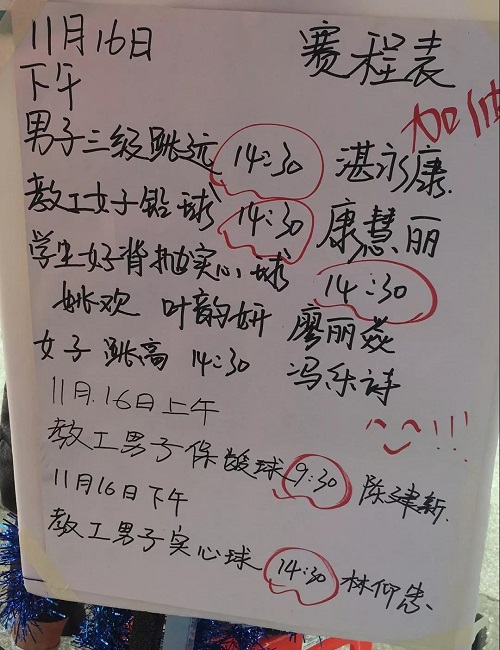 11月16日 赛程表
下午
加油
男子三级跳远 14:30 湛永康
教工女子铅球 14:30 康慧丽
学生女子背抛实心球 14:30
姚欢 叶韵妍 廖丽焱
女子跳高 14:30 冯乐诗
11月.16日上午
!!!
教工男子保龄球 9:30 陈建新
11月16日下午
教工男子实心球 14:30 林仰忠